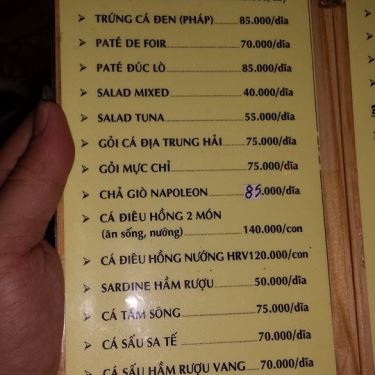 ➤ TRỨNG CÁ ĐEN (PHÁP) 85.000/dĩa
➤ PATÉ DE FOIR 70.000/dĩa
➤ PATÉ ĐÚC LÒ 85.000/dĩa
➤ SALAD MIXED 40.000/dĩa
➤ SALAD TUNA 55.000/dĩa
➤ GỎI CÁ ĐỊA TRUNG HẢI 75.000/dĩa
➤ GỎI MỰC CHỈ 75.000/dĩa
➤ CHẢ GIÒ NAPOLEON 85.000/dĩa
➤ CÁ ĐIÊU HỒNG 2 MÓN
(ăn sống, nướng) 140.000/con
➤ CÁ ĐIÊU HỒNG NƯỚNG HRV120.000/con
➤ SARDINE HẦM RƯỢU 50.000/dĩa
➤ CÁ TẦM SÔNG 75.000/dĩa
➤ CÁ SẤU SA TẾ 70.000/dĩa
➤ CÁ SẤU HẦM RƯỢU VANG 70.000/dĩa